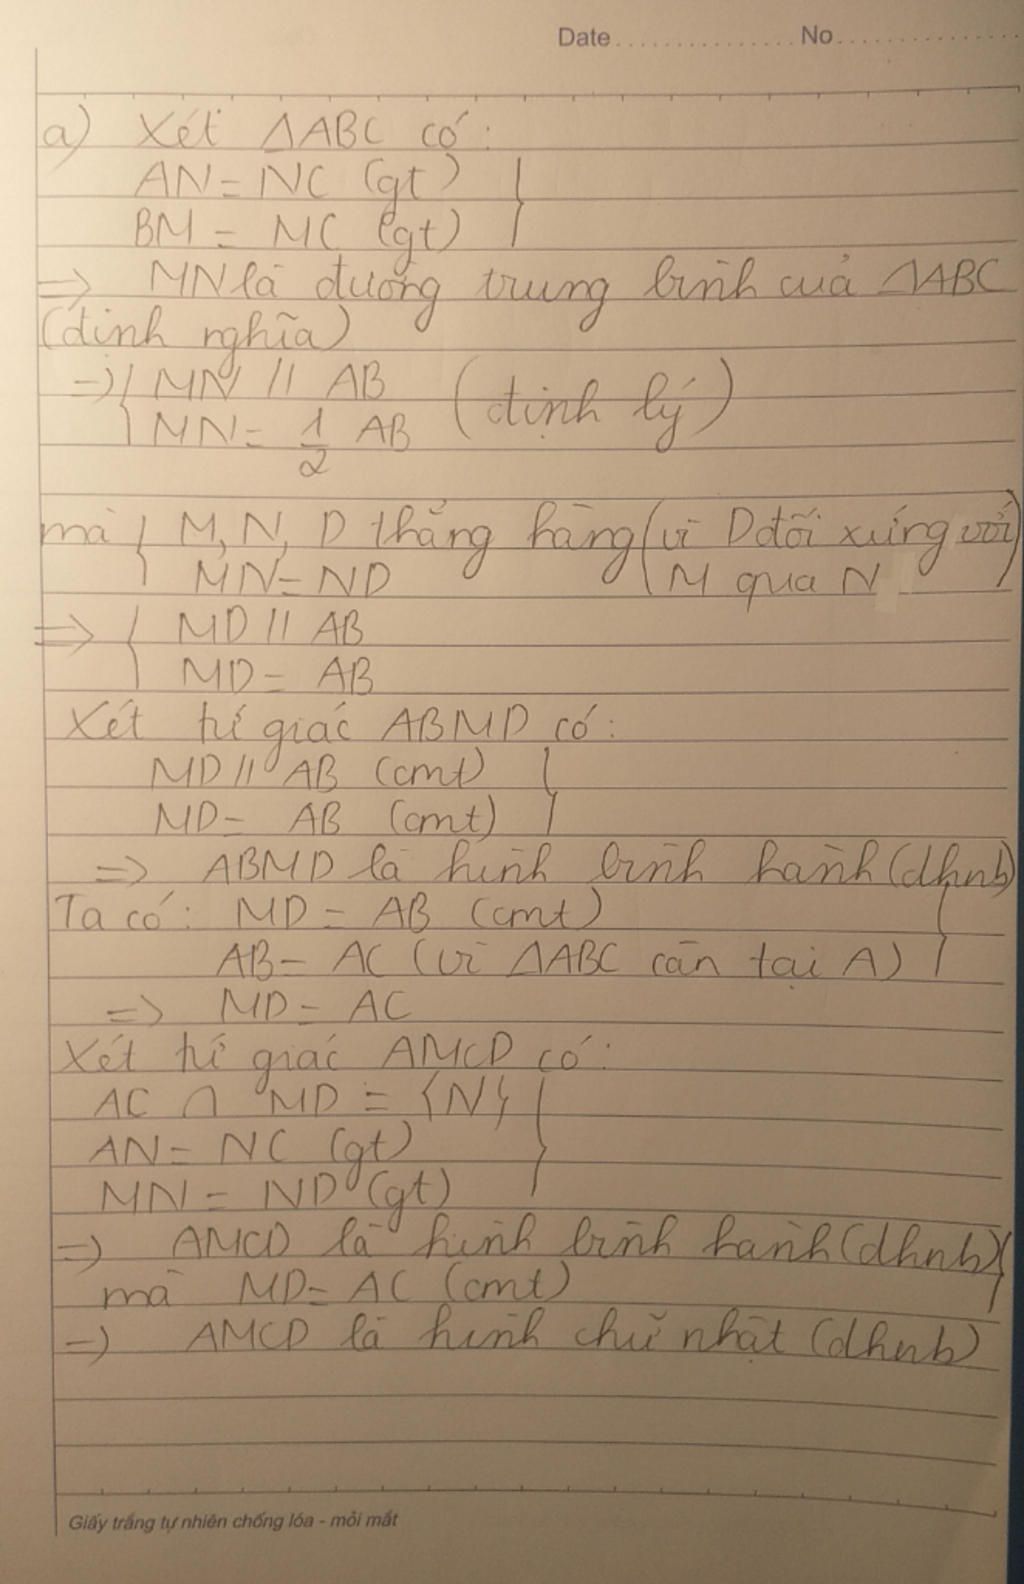 Date.................No.................
a) Xét ΔABC có:
AN = NC (gt) }
BM = MC (gt)
=> MN là đường trung bình của ΔABC
(định nghĩa)
=> { MN // AB (định lý)
MN = 1/2 AB
mà { M, N, D thẳng hàng (vì D đối xứng với
MN = ND M qua N)
=> { MD // AB
MD = AB
Xét tứ giác ABMD có:
MD // AB (cmt) }
MD = AB (cmt)
=> ABMD là hình bình hành (dhnb)
Ta có: MD = AB (cmt) }
AB = AC (vì ΔABC cân tại A)
=> MD = AC
Xét tứ giác AMCD có:
AC ∩ MD = {N} }
AN = NC (gt)
MN = ND (gt)
=> AMCD là hình bình hành (dhnb) }
mà MD = AC (cmt)
=> AMCD là hình chữ nhật (dhnb)
Giấy trắng tự nhiên chống lóa - mỏi mắt